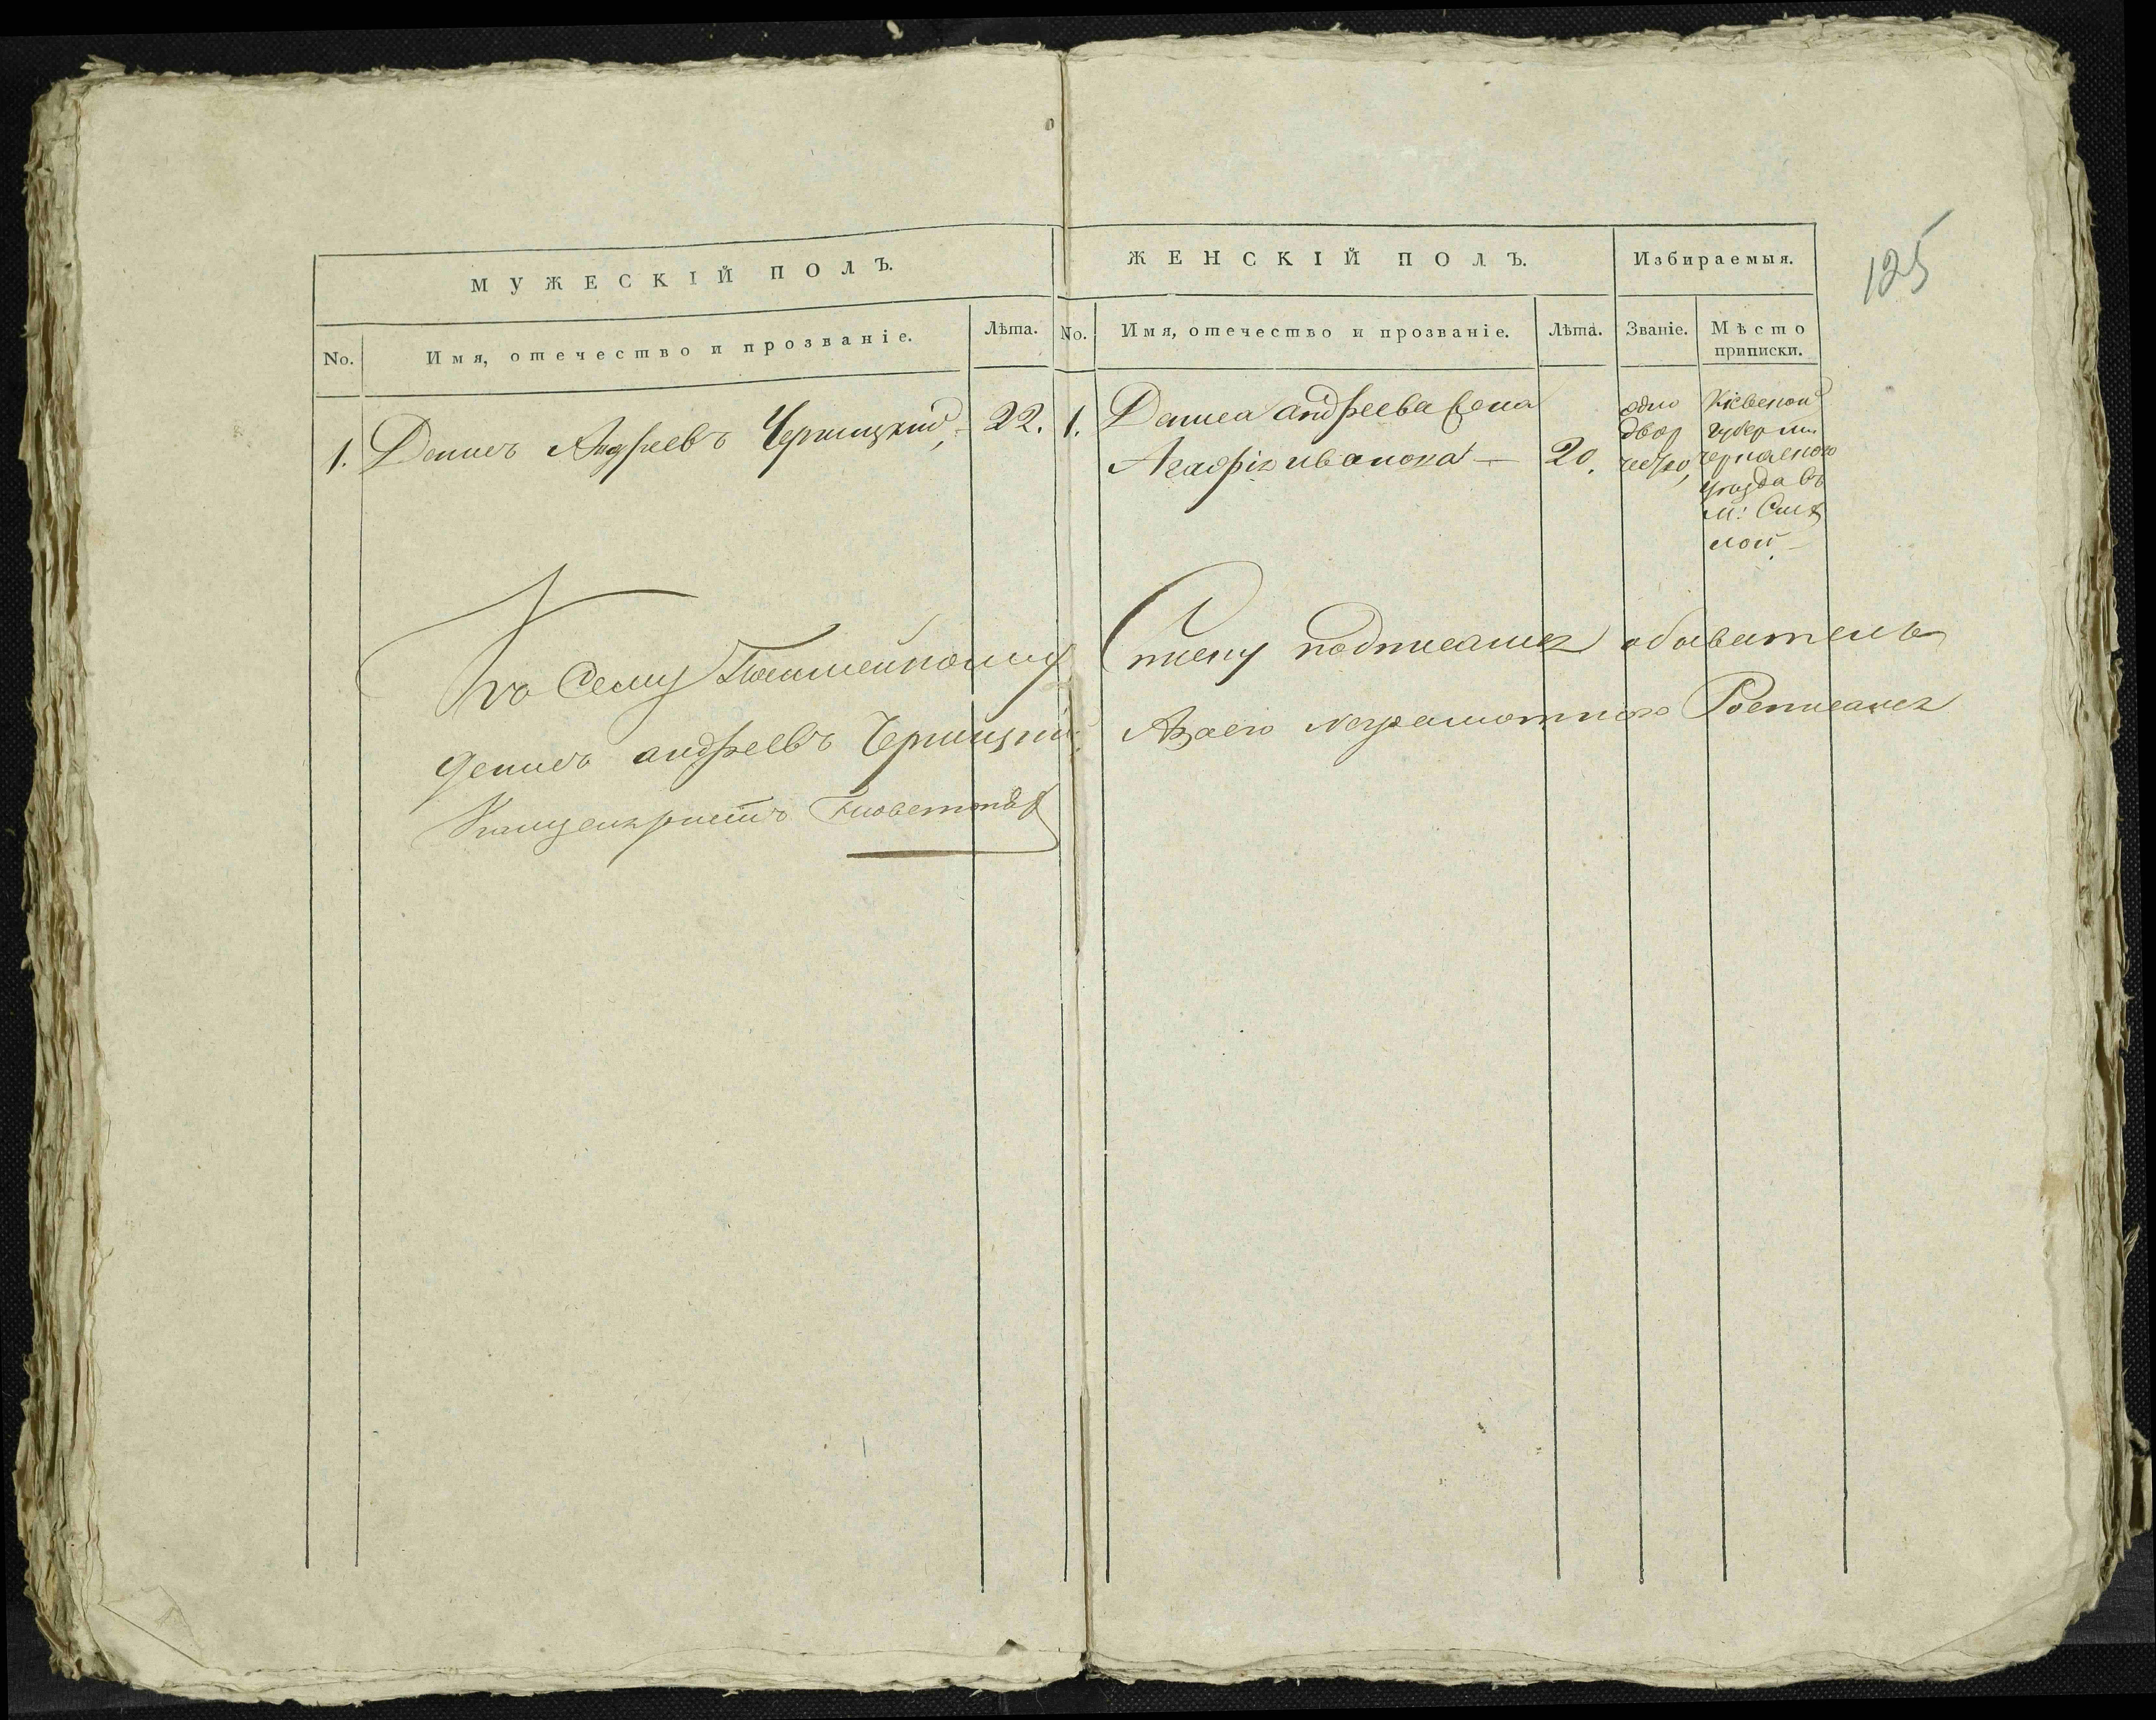 МУЖЕСКІЙ ПОЛЪ.
No.
Имя, отечество и прозваніе.
Лѣта.
1. Денисъ Андреевъ Черницкий, 22.
Къ Сему Посимейному
Денисъ андреевъ Черницкий
Канцеляристъ
ЖЕНСКІЙ ПОЛЪ.
Избираемыя.
No.
Имя, отечество и прозваніе.
Лѣта.
Званіе.
Мѣсто
приписки.
125
1. Дениса андреева жена
Агафія иванова — 20.
одно
двор
чество,
Кіевской
губерніи
черкаского
уезда въ
м: Смѣ
лой
Списку подписался обыватель
Азаего неграмотного Росписался